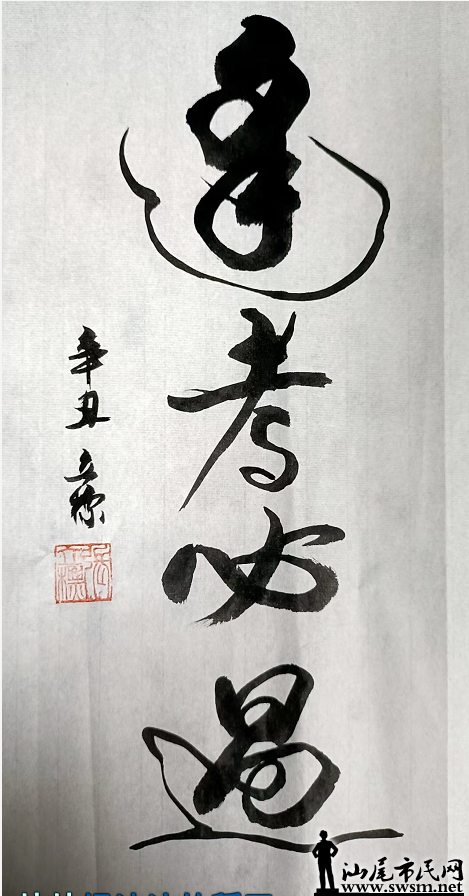 逢考必过
辛丑
汕尾市民网
www.swsm.net